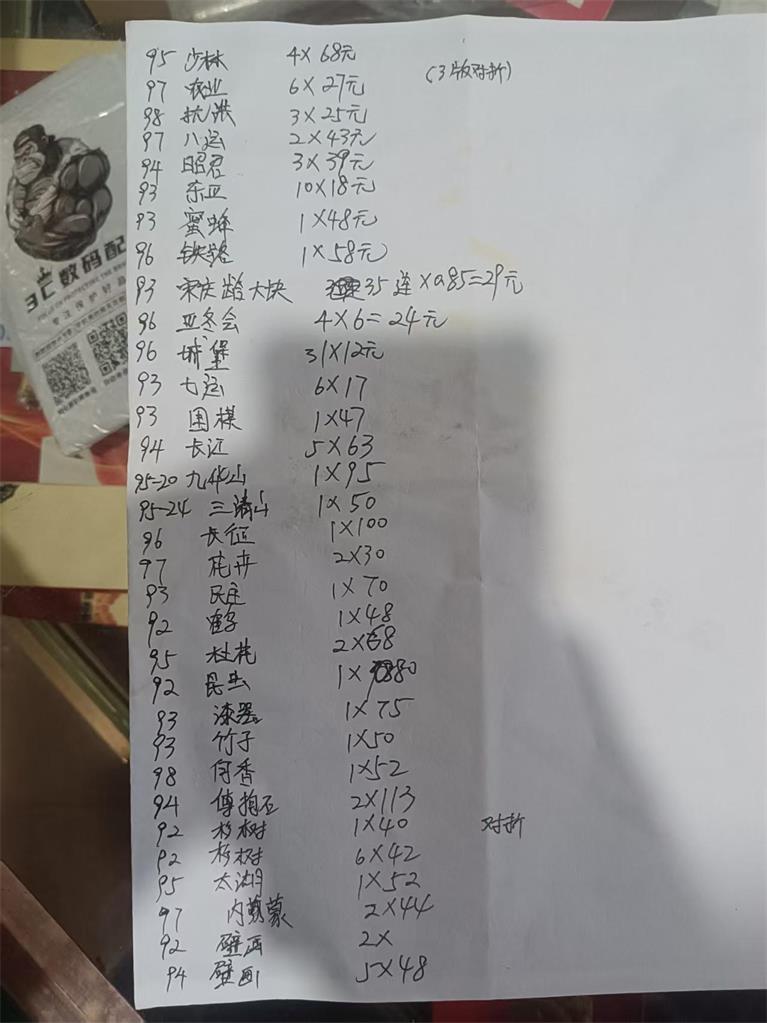 95 少林 4×68元 (3版对折)
97 农业 6×27元
98 抗洪 3×25元
97 八运 2×43元
94 昭君 3×39元
93 东亚 10×18元
93 蜜蜂 1×48元
96 铁路 1×58元
93 宋庆龄大块 35连×0.85=29元
96 亚冬会 4×6=24元
96 城堡 31×12元
93 七运 6×17
93 围棋 1×47
94 长江 5×63
95-20 九华山 1×95
95-24 三清山 1×50
96 长征 1×100
97 花卉 2×30
93 民庄 1×70
92 鹳 1×48
95 杜花 2×68
92 昆虫 1×80
93 漆器 1×75
93 竹子 1×50
98 何香 1×52
94 傅抱石 2×113
92 杉树 1×40 对折
92 杉树 6×42
95 太湖 1×52
97 内蒙 2×44
92 壁画 2×
94 壁画 5×48
3C数码配
专注保护好品